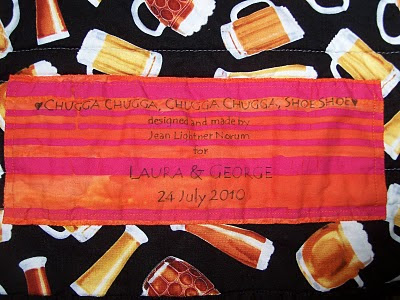 ♥CHUGGA CHUGGA, CHUGGA CHUGGA, SHOE SHOE♥
designed and made by
Jean Lightner Norum
for
LAURA & GEORGE
24 July 2010